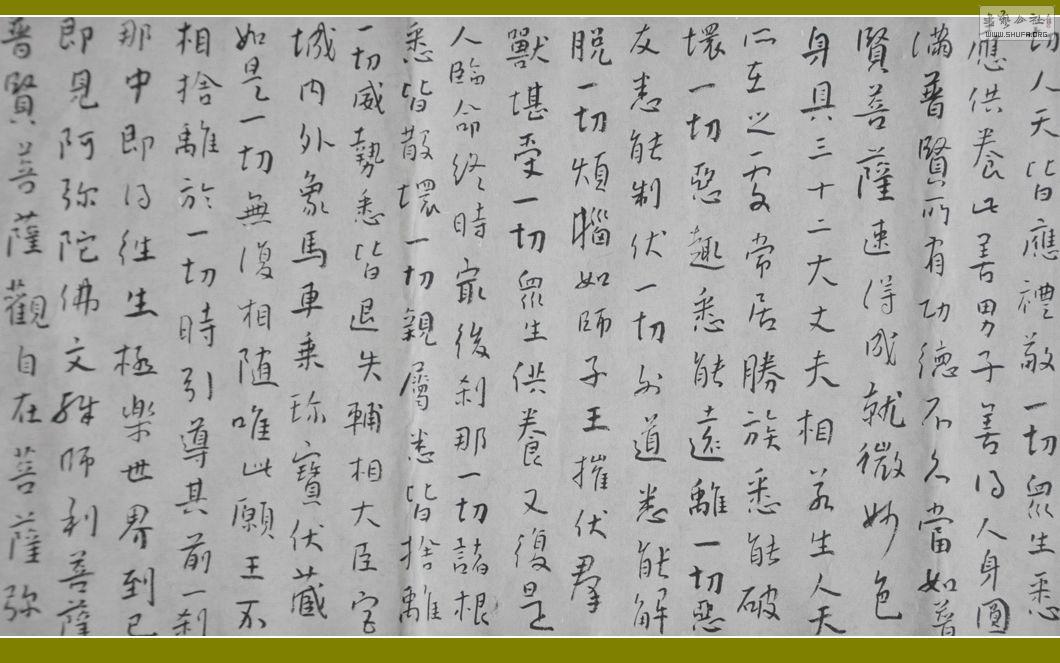 切人天皆應禮敬一切眾生悉
應供養此善男子善得人身圓
滿普賢所有功德不久當如普
賢菩薩速得成就微妙色
身具三十二大丈夫相若生人天
所在之處常居勝族悉能破
壞一切惡趣悉能遠離一切惡
友悉能制伏一切外道悉能解
脫一切煩惱如師子王摧伏群
獸堪受一切眾生供養又復是
人臨命終時最後剎那一切諸根
悉皆散壞一切親屬悉皆捨離
一切威勢悉皆退失輔相大臣宮
城內外象馬車乘珍寶伏藏
如是一切無復相隨唯此願王不
相捨離於一切時引導其前一剎
那中即得往生極樂世界到已
即見阿弥陀佛文殊師利菩薩
普賢菩薩觀自在菩薩弥
WWW.SHUFA.ORG